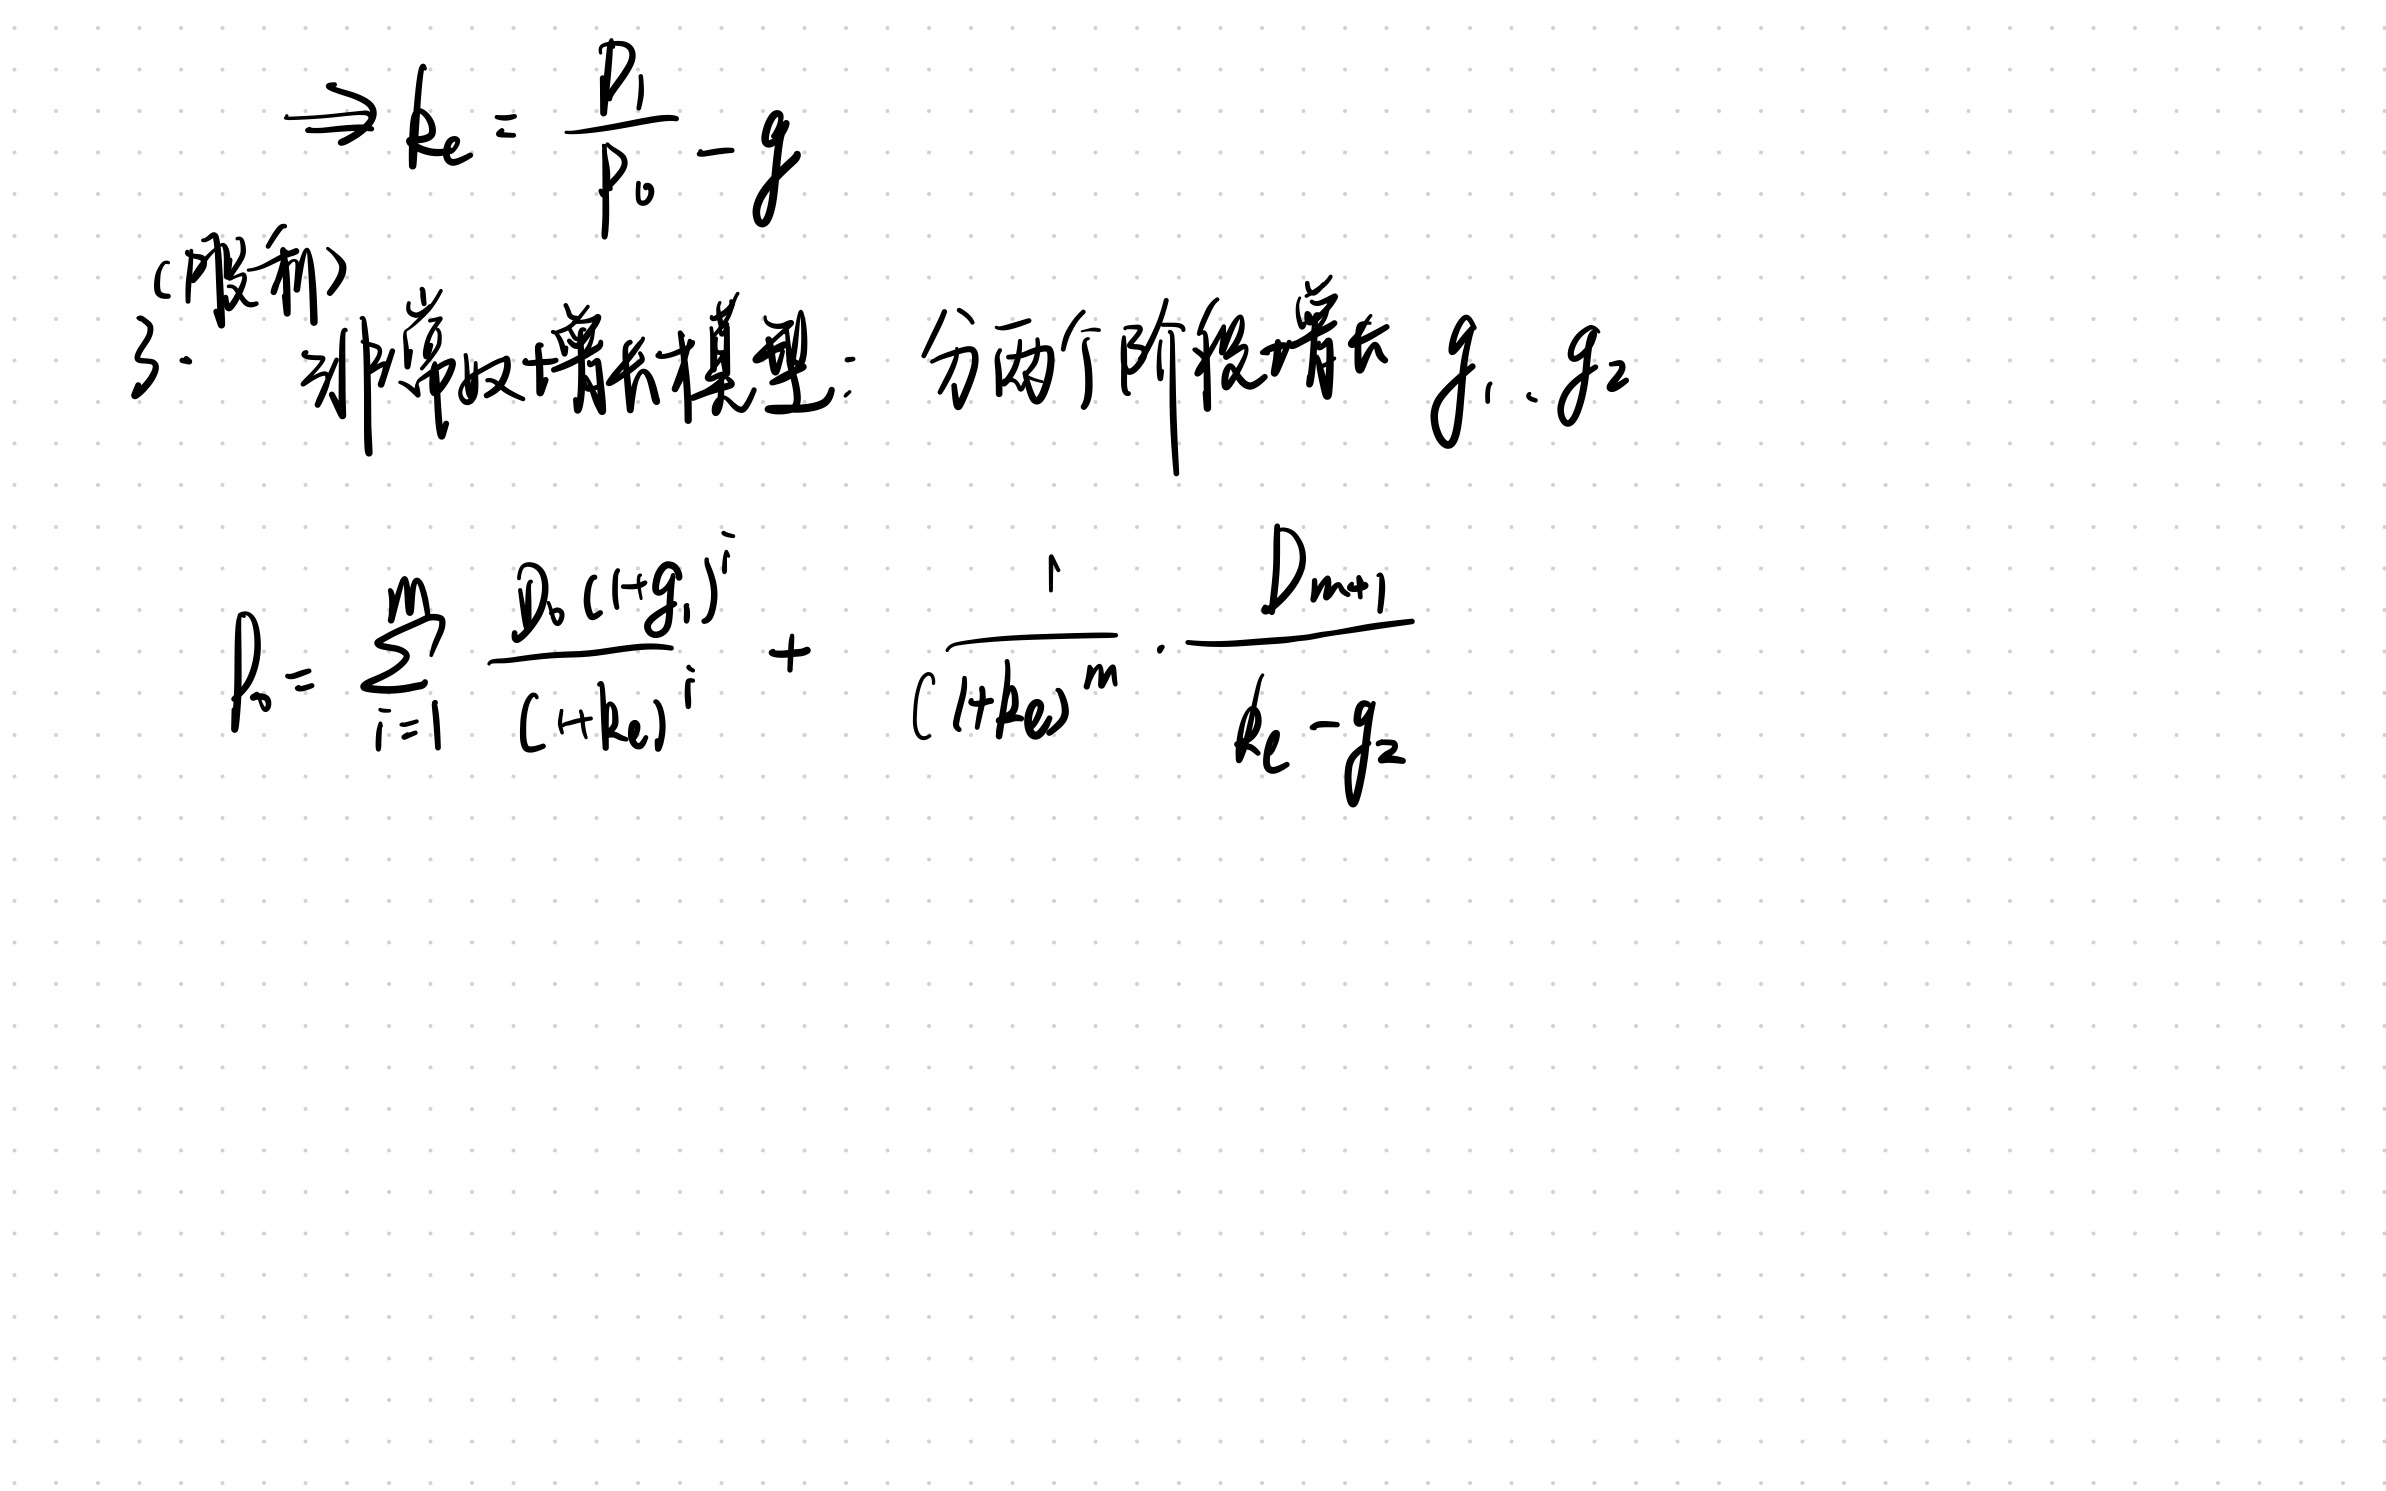 ⇒ ke = D1/P0 - g
(股利)
3. 非常态增长模型: 分两个阶段增长 g1、g2
P0 = Σ_{i=1}^{m} D0(1+g1)^i/(1+ke)^i + 1/(1+ke)^m · D_{m+1}/(ke - g2)